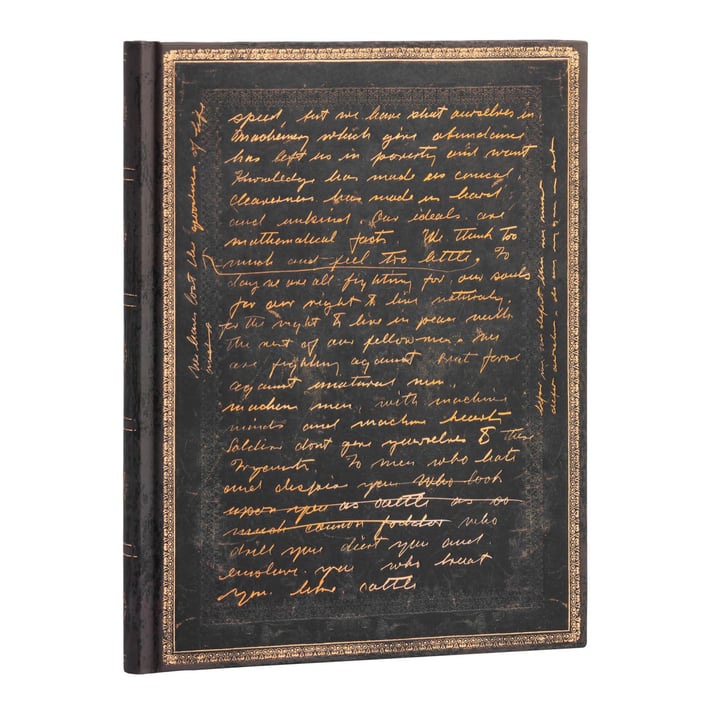 speed, but we have shut ourselves in
Machinery which gives abundance
has left us in poverty and want
Knowledge has made us cynical.
cleaverness has made us hard,
and unkind. Our ideals are
mathematical facts. We think too
much and feel too little. To
day we are all fighting for, our souls
for our right to live naturaly.
for the right to live in peace with
the rest of our fellow men. We
are fighting against brut force
against unatural men.
machen men, with machine
minds and machine hearts
Soldiers dont give yourselves to these
Tryants. To men who hate
and despise you who look
upon you as cattle as so
much cannon fodder who
drill you diet you and
enslave you who treat
you like cattle
We have lost the goodness of life